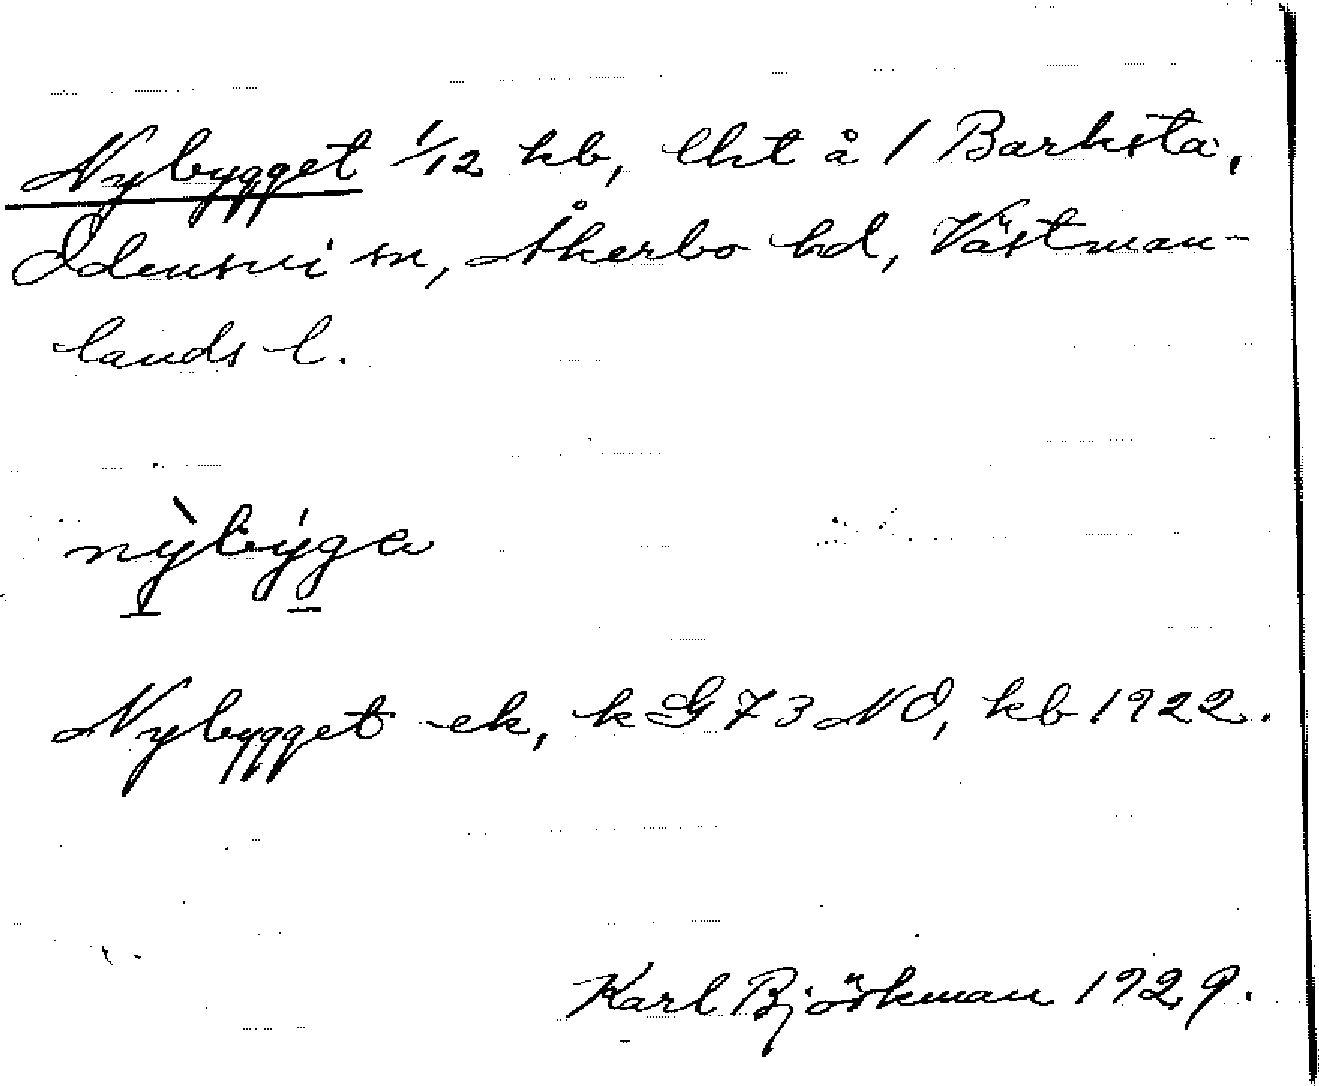 Nybygget 1/12 kb, lht å 1 Barksta,
Odensvi sn, Åkerbo hd, Västman-
lands l.
nỳbýga
Nybygget ek, k G 73 NO, kb 1922.
Karl Björkman 1929.